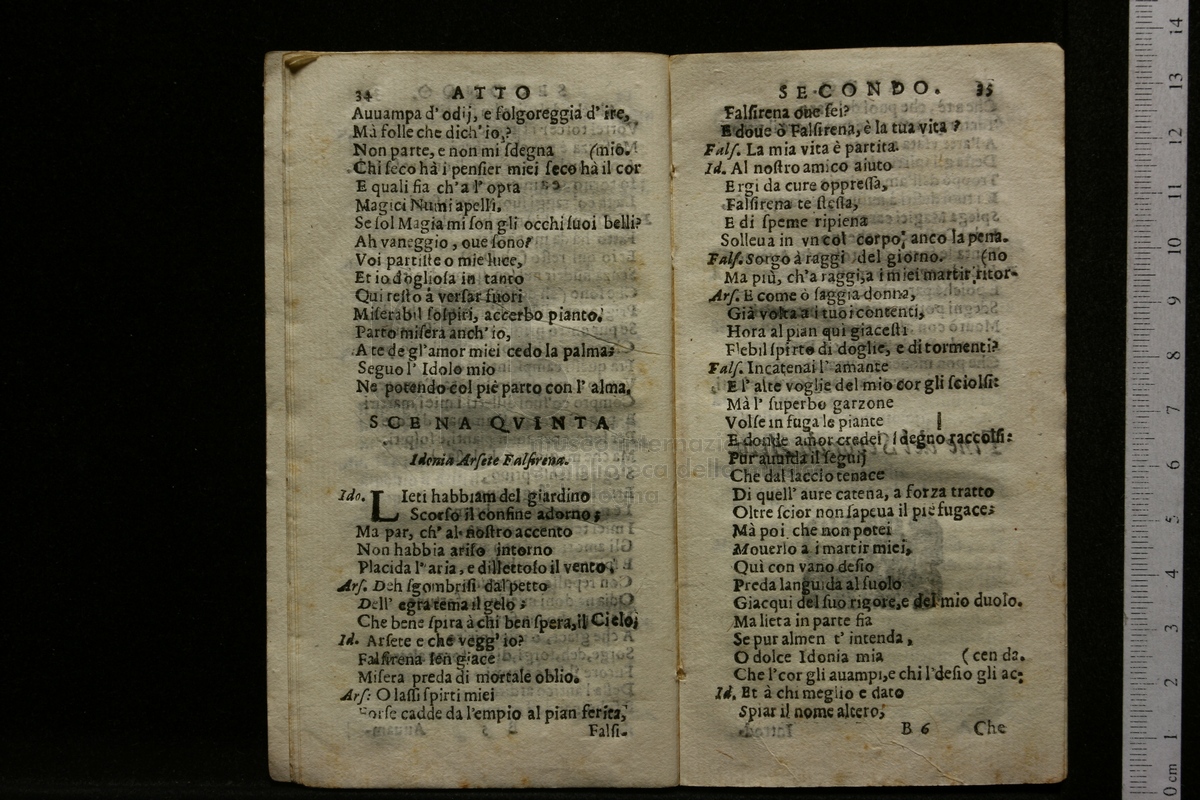 34 ATTO
Auuampa d' odij, e folgoreggia d' ire,
Mà folle che dich' io,?
Non parte, e non mi sdegna (mio.
Chi seco hà i pensier miei seco hà il cor
E quali fia ch'a l' opra
Magici Numi apelli,
Se sol Magia mi son gli occhi suoi belli?
Ah vaneggio, oue sono?
Voi partiste o mie luce,
Et io dogliosa in tanto
Qui resto à versar fuori
Miserabil sospiri, accerbo pianto.
Parto misera anch' io,
A te de gl'amor miei cedo la palma;
Seguo l' Idolo mio
Ne potendo col piè parto con l' alma.
SCENA QVINTA
Idonia Arsete Falsirena.
Ido. LIeti habbiam del giardino
Scorso il confine adorno;
Ma par, ch' al nostro accento
Non habbia ariso intorno
Placida l'aria, e dillettoso il vento.
Ars. Deh sgombrisi dal petto
Dell' egra tema il gelo;
Che bene spira à chi ben spera, il Cielo;
Id. Arsete e che vegg' io?
Falsirena sen giace
Misera preda di mortale oblio.
Ars: O lassi spirti miei
Forse cadde da l'empio al pian ferita,
Falsi-
SECONDO. 35
Falsirena oue sei?
E doue ò Falsirena, è la tua vita?
Fals. La mia vita è partita.
Id. Al nostro amico aiuto
Ergi da cure oppressa,
Falsirena te stessa,
E di speme ripiena
Solleua in vn col corpo, anco la pena.
Fals. Sorgo à raggi del giorno. (no
Ma più, ch'a raggi, a i miei martir ritor-
Ars. E come ò saggia donna,
Già volta a i tuoi contenti,
Hora al pian qui giacesti
Flebil spirto di doglie, e di tormenti?
Fals. Incatenai l' amante
E l' alte voglie del mio cor gli sciolsi:
Mà l' superbo garzone
Volse in fuga le piante
E donde amor credei sdegno raccolsi:
Pur auuida il seguij
Che dal laccio tenace
Di quell' aure catena, a forza tratto
Oltre scior non sapeua il piè fugace;
Mà poi che non potei
Mouerlo a i martir miei,
Quì con vano desio
Preda languida al suolo
Giacqui del suo rigore, e del mio duolo.
Ma lieta in parte fia
Se pur almen t' intenda,
O dolce Idonia mia (cenda.
Che l'cor gli auampi, e chi l'desio gli ac:
Id. Et à chi meglio e dato
Spiar il nome altero;
B 6 Che